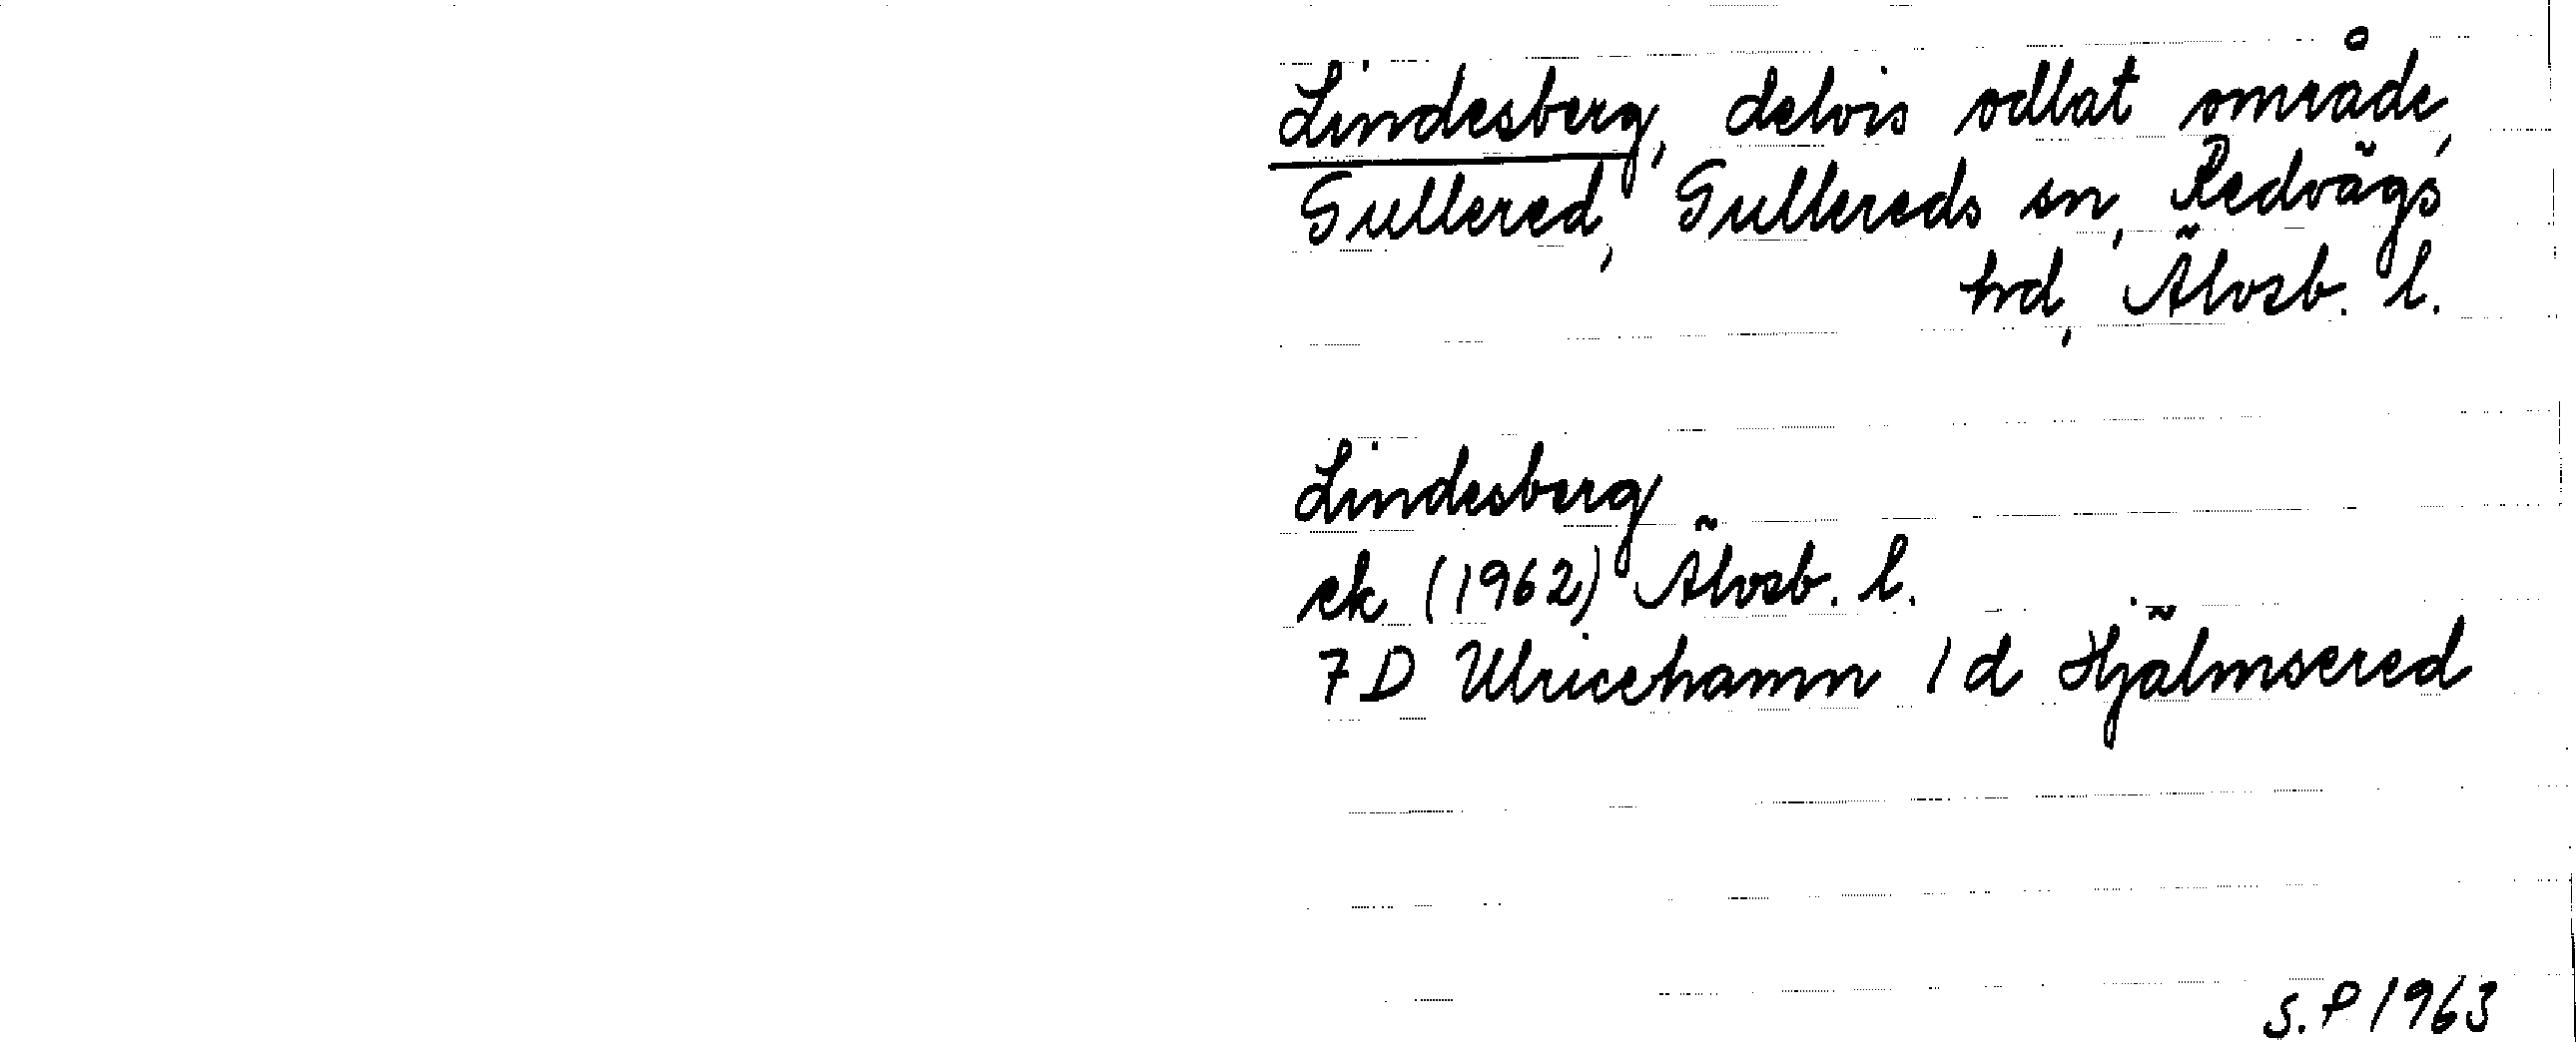 Lindesberg, delvis odlat område,
Gullered, Gullereds sn, Redvägs
hd, Älvsb. l.
Lindesberg
ek (1962) Älvsb. l.
7D Ulricehamn 1d Hjälmsered
S.P 1963